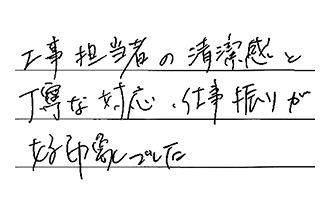 工事担当者の清潔感と
丁寧な対応、仕事振りが
好印象でした